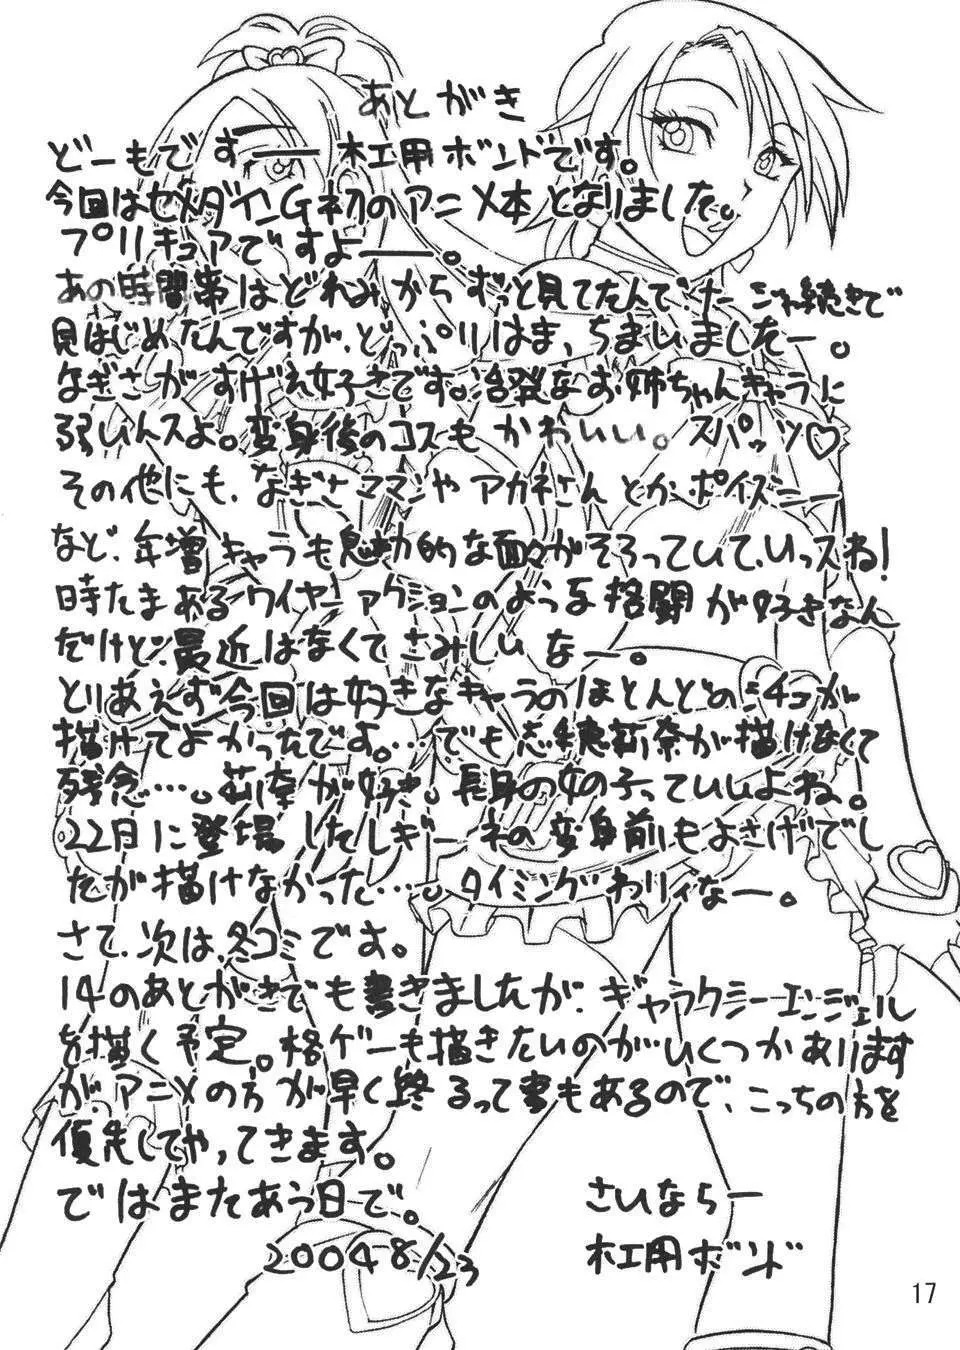 あとがき
どーもですー 木工用ボンドです。
今回はセメダインG初のアニメ本となりました。
プリキュアですよー。
あの時間帯はどれみからずっと見てたんで、続きで
見はじめたんですが、どっぷりはまっちまいましたー。
なぎさがすげえ好きです。活発なお姉ちゃんキャラに
弱いんスよ。変身後のコスもかわいい。スパッツ♡
その他にも、なぎさママンやアカネさんとかポイズニー
など、年増キャラも魅力的な面々がそろっていて、いっスね!
時たまあるワイヤーアクションのような格闘が好きなん
だけど、最近はなくてさみしいなー。
とりあえず今回は好きなキャラのほとんどのシチュが
描けてよかったです。…でも志穂莉奈が描けなくて
残念…。莉奈が好き。長身の女の子っていいよね。
22日に登場したレギーネの変身前もよさげでし
たが描けなかった…。タイミングわりィなー。
さて、次は、冬コミです。
14のあとがきでも書きましたが、ギャラクシーエンジェル
を描く予定。格ゲーも描きたいのが、いくつかあります
が、アニメの方が早く終るって事もあるので、こっちの方を
優先してやってきます。
ではまたあう日で。
さいならー
2004 8/23
木工用ボンド
17